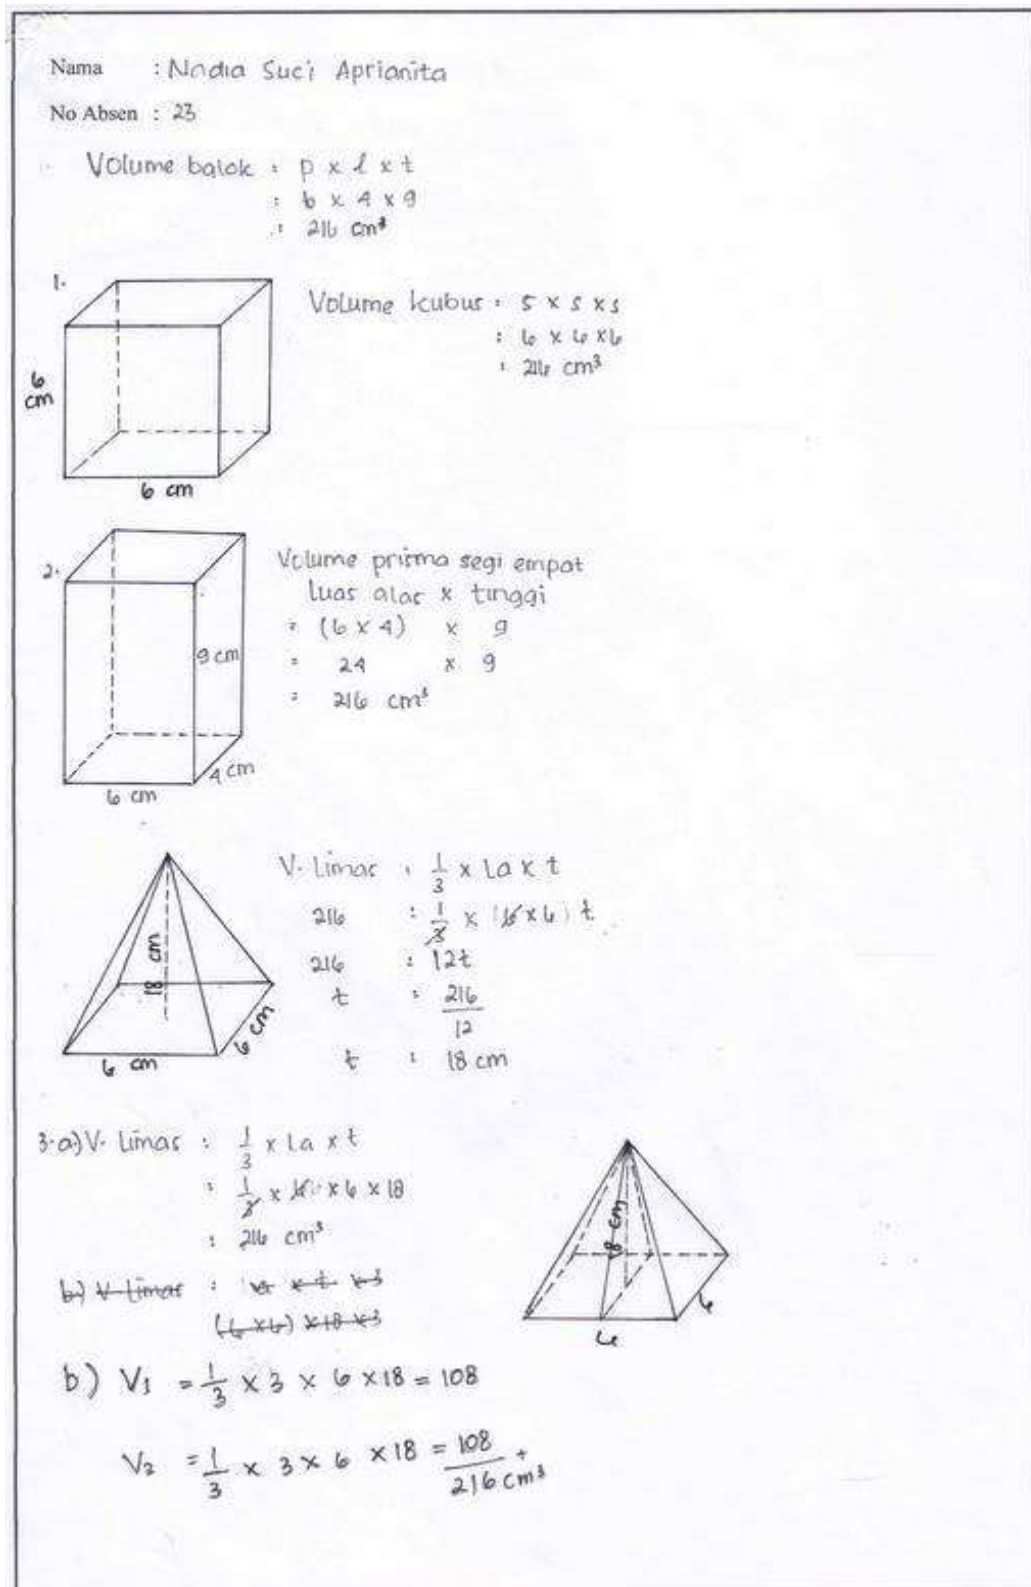 Nama : Nadia Suci Aprianita
No Absen : 23
Volume balok : p x l x t
: 6 x 4 x 9
: 216 cm³
1.
6 cm
6 cm
Volume kubus : s x s x s
: 6 x 6 x 6
: 216 cm³
2.
9 cm
4 cm
6 cm
Volume prisma segi empat
luas alas x tinggi
= (6 x 4) x 9
= 24 x 9
= 216 cm³
18 cm
6 cm
6 cm
V. Limas : 1/3 x La x t
216 : 1/3 x (6 x 6) t
216 : 12t
t : 216/12
t : 18 cm
3. a) V. Limas : 1/3 x La x t
: 1/3 x 6 x 6 x 18
: 216 cm³
18 cm
6
6
b.) V. Limas : La x t x 3
(6 x 6) x 18 x 3
b) V₁ = 1/3 x 3 x 6 x 18 = 108
V₂ = 1/3 x 3 x 6 x 18 = 108 +
216 cm³